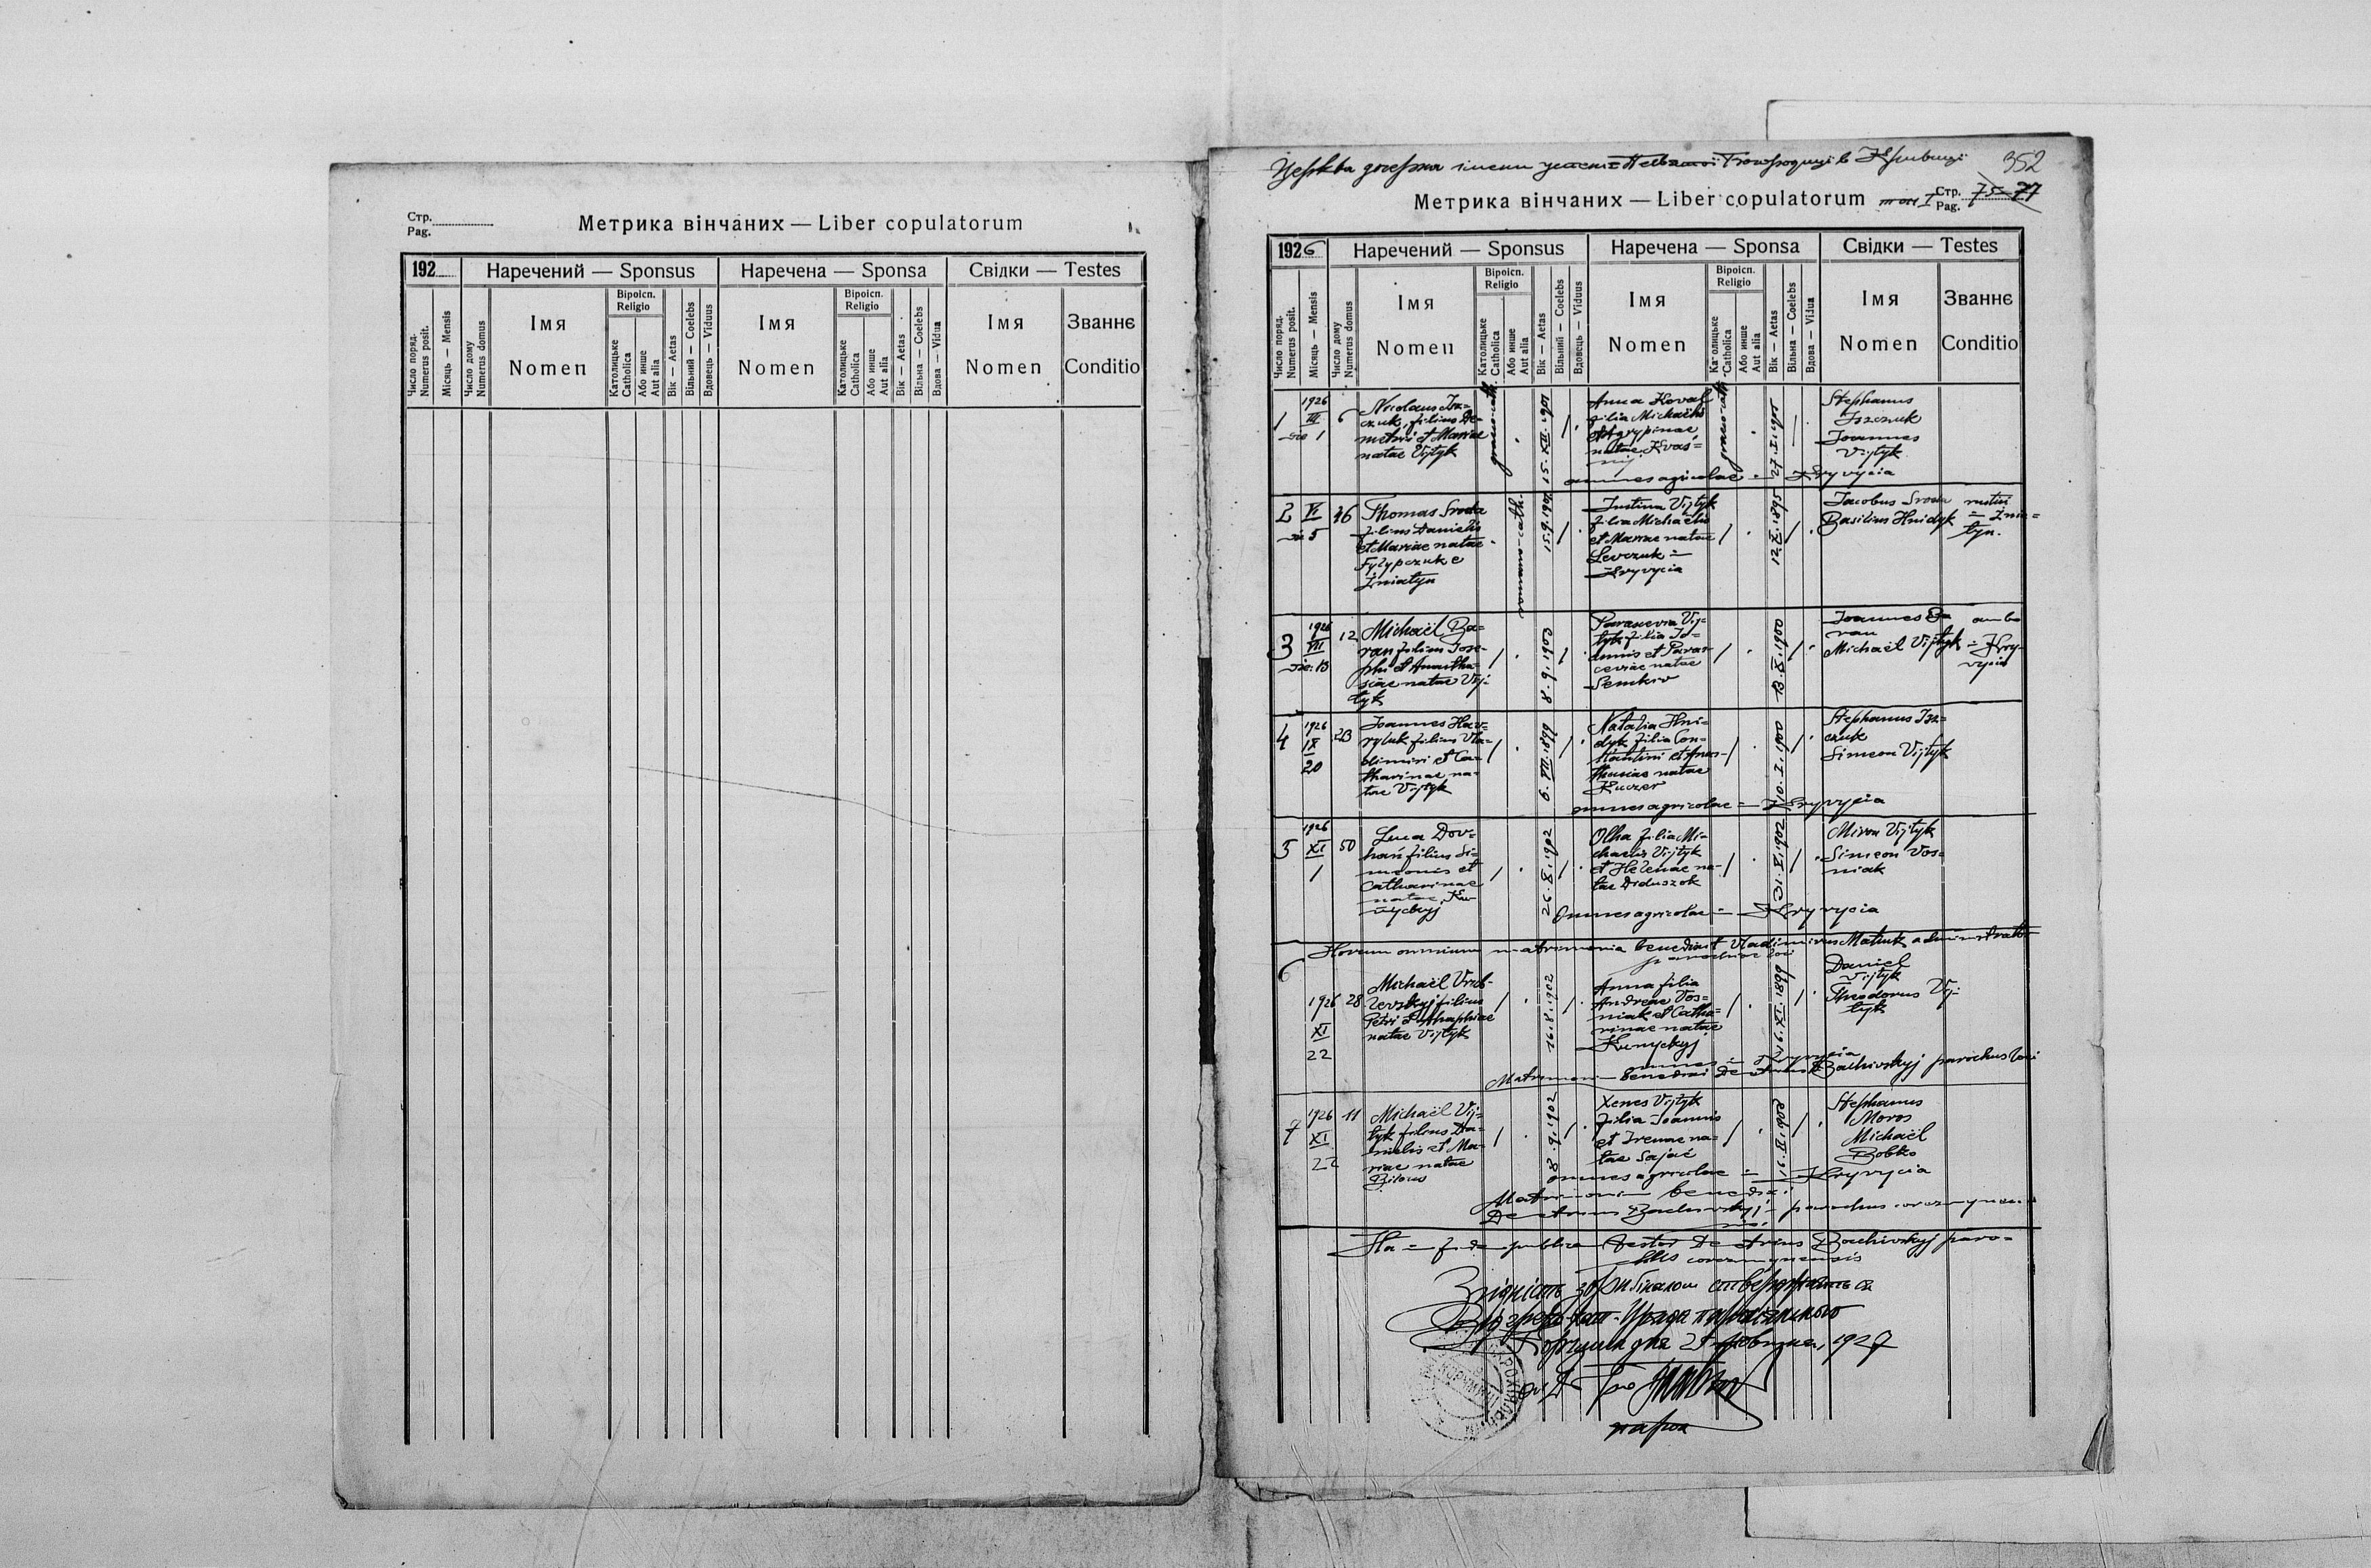 Стр.
Pag.
Метрика вінчаних — Liber copulatorum
192
Наречений — Sponsus
Наречена — Sponsa
Свідки — Testes
Число поряд.
Numerus posit.
Місяць — Mensis
Число дому
Numerus domus
Імя
Nomen
Віроісп.
Religio
Католицьке
Catholica
Або инше
Aut alia
Вік — Aetas
Вільний — Coelebs
Вдовець — Viduus
Імя
Nomen
Віроісп.
Religio
Католицьке
Catholica
Або инше
Aut alia
Вік — Aetas
Вільна — Coelebs
Вдова — Vidua
Імя
Nomen
Званнє
Conditio
Церква дочерна імени в Кривици
352
Метрика вінчаних — Liber copulatorum
tom I
Стр.
Pag.
75 77
1926
Наречений — Sponsus
Наречена — Sponsa
Свідки — Testes
Число поряд.
Numerus posit.
Місяць — Mensis
Число дому
Numerus domus
Імя
Nomen
Віроісп.
Religio
Католицьке
Catholica
Або инше
Aut alia
Вік — Aetas
Вільний — Coelebs
Вдовець — Viduus
Імя
Nomen
Віроісп.
Religio
Католицьке
Catholica
Або инше
Aut alia
Вік — Aetas
Вільна — Coelebs
Вдова — Vidua
Імя
Nomen
Званнє
Conditio
1
1926
III
die 1
6
Nicolaus Isz=
czuk, filius De=
metrii et Mariae
natae Vijtyk
graeco-cath.
15.XII.1901
Anna Koval
filia Michaëlis
et Agrypinae
natae Kvas=
nij
graeco-cath.
27.I.1905
Stephanus
Iszczuk
Joannes
Vijtyk
omnes agricolae = Kryvycia
2
VI
die 5
46
Thomas Sroka
filius Danielis
et Mariae natae
Fylypczuk e
Żniatyn
romano-cath.
15.9.1901
Justina Vijtyk
filia Michaelis
et Mariae natae
Levczuk =
Kryvycia
12.X.1895
Jacobus Sroka
Basilius Hnidyk
rustici
= Żnia=
tyn.
3
1926
VII
die 13
12
Michaël Ba=
ran filius Jose=
phi et Anastha=
siae natae Vij=
tyk
8.9.1903
Parascevia Vij=
tyk filia Jo=
annis et Paras=
ceviae natae
Semkiv
13.X.1900
Joannes Ba
ran
Michaël Vijtyk
ambo
= Kry=
vycia
4
1926
IX
20
23
Joannes Hav=
ryluk filius Vla=
dimiri et Ca=
tharinae na=
tae Vijtyk
6.VII.1899
Natalia Hni=
dyk filia Con=
stantini et Anas=
thasiae natae
Kuczer
10.I.1900
Stephanus Isz=
czuk
Simeon Vijtyk
omnes agricolae = Kryvycia
5
1926
XI
1
50
Luca Dov=
hań filius Si=
meonis et
Catharinae
natae Ku=
nyckyj
26.X.1902
Olha filia Mi=
chaelis Vijtyk
et Helenae na=
tae Diduszok
31.V.1902
Miron Vijtyk
Simeon Vos=
niak
Omnes agricolae = Kryvycia
Horum omnium matrimonia benedixit Vladimirus Matiuk administrator
parochiae loci
6
1926
XI
22
28
Michaël Vrub=
levskyj filius
Petri et Agaphiae
natae Vijtyk
16.8.1902
Anna filia
Andreae Vos=
niak et Catha=
rinae natae
Kunyckyj
16.XI.1899
Daniel
Vijtyk
Theodorus Vij=
tyk
omnes = Kryvycia
Matrimonium benedixi Demetrius Bachivskyj parochus loci
7
1926
XI
22
11
Michaël Vij=
tyk filius Da=
nielis et Ma=
riae natae
Bilous
8.9.1902
Xenes Vijtyk
filia Joannis
et Irenae na=
tae Sajać
16.II.1908
Stephanus
Moros
Michaël
Bobko
omnes agricolae = Kryvycia
Matrimonium benedixi
Demetrius Bachivskyj = parochus
Ita = fidem publicam testor Demetrius Bachivskyj paro=
chus
Згідність з оригіналом стверджаєть ся
Від греко-кат. Уряду парохіяльного
дня 25 1927
парох